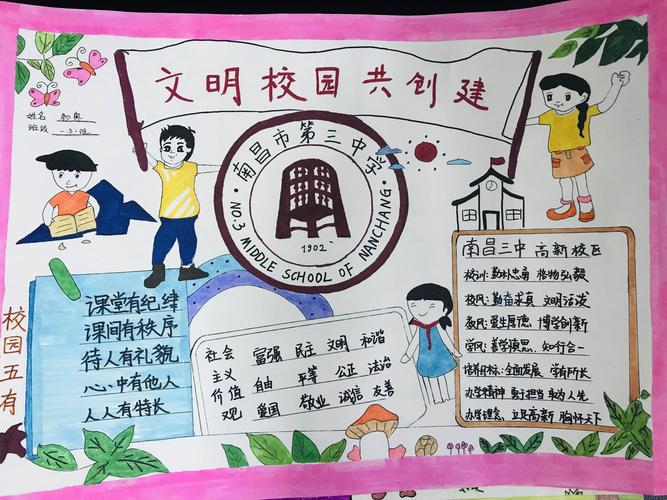 文明校园共创建
姓名
班级 一.3.班
南昌市第三中学
NO.3 MIDDLE SCHOOL OF NANCHANG
1902
校园五有
课堂有纪纬
课间有秩序
待人有礼貌
心中有他人
人人有特长
社会主义价值观
富强 民主 文明 和谐
自由 平等 公正 法治
爱国 敬业 诚信 友善
南昌三中 高新校区
校训:勤朴忠勇 格物弘毅
校风:勤奋求真 文明活泼
教风:爱生厚德 博学创新
学风:善学慎思,知行合一
培养目标:全面发展 学有所长
办学精神 勇于担当 享动人生
办学理念,立足高新 胸怀天下